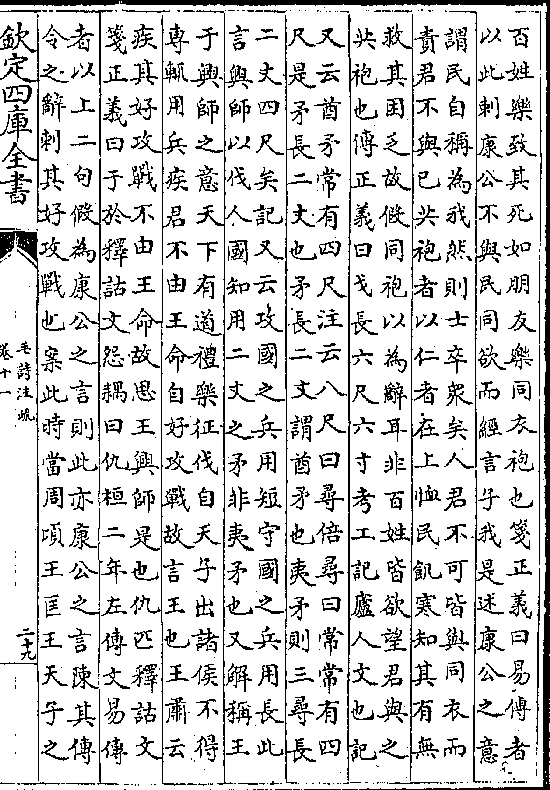 百姓樂致其死如朋友樂同衣袍也箋正義曰易傳者
以此刺康公不與民同欲而經言子我是述康公之意
謂民自稱為我然則士卒衆矣人君不可皆與同衣而
責君不與已共袍者以仁者在上恤民飢寒知其有無
救其困乏故假同袍以為辭耳非百姓皆欲望君與之
共袍也傳正義曰戈長六尺六寸考工記廬人文也記
又云酋矛常有四尺注云八尺曰尋倍尋曰常常有四
尺是矛長二丈也矛長二丈謂酋矛也夷矛則三尋長
二丈四尺矣記又云攻國之兵用短守國之兵用長此
言興師以伐人國知用二丈之矛非夷矛也又解稱王
于興師之意天下有道禮樂征伐自天子出諸侯不得
專輒用兵疾君不由王命自好攻戰故言王也王肅云
疾其好攻戰不由王命故思王興師是也仇匹釋詁文
箋正義曰于於釋詁文怨耦曰仇桓二年左傳文易傳
者以上二句假為康公之言則此亦康公之言陳其傳
令之辭刺其好攻戰也案此時當周頃王匡王天子之
欽定四庫全書
毛詩注疏
卷十一
二十九